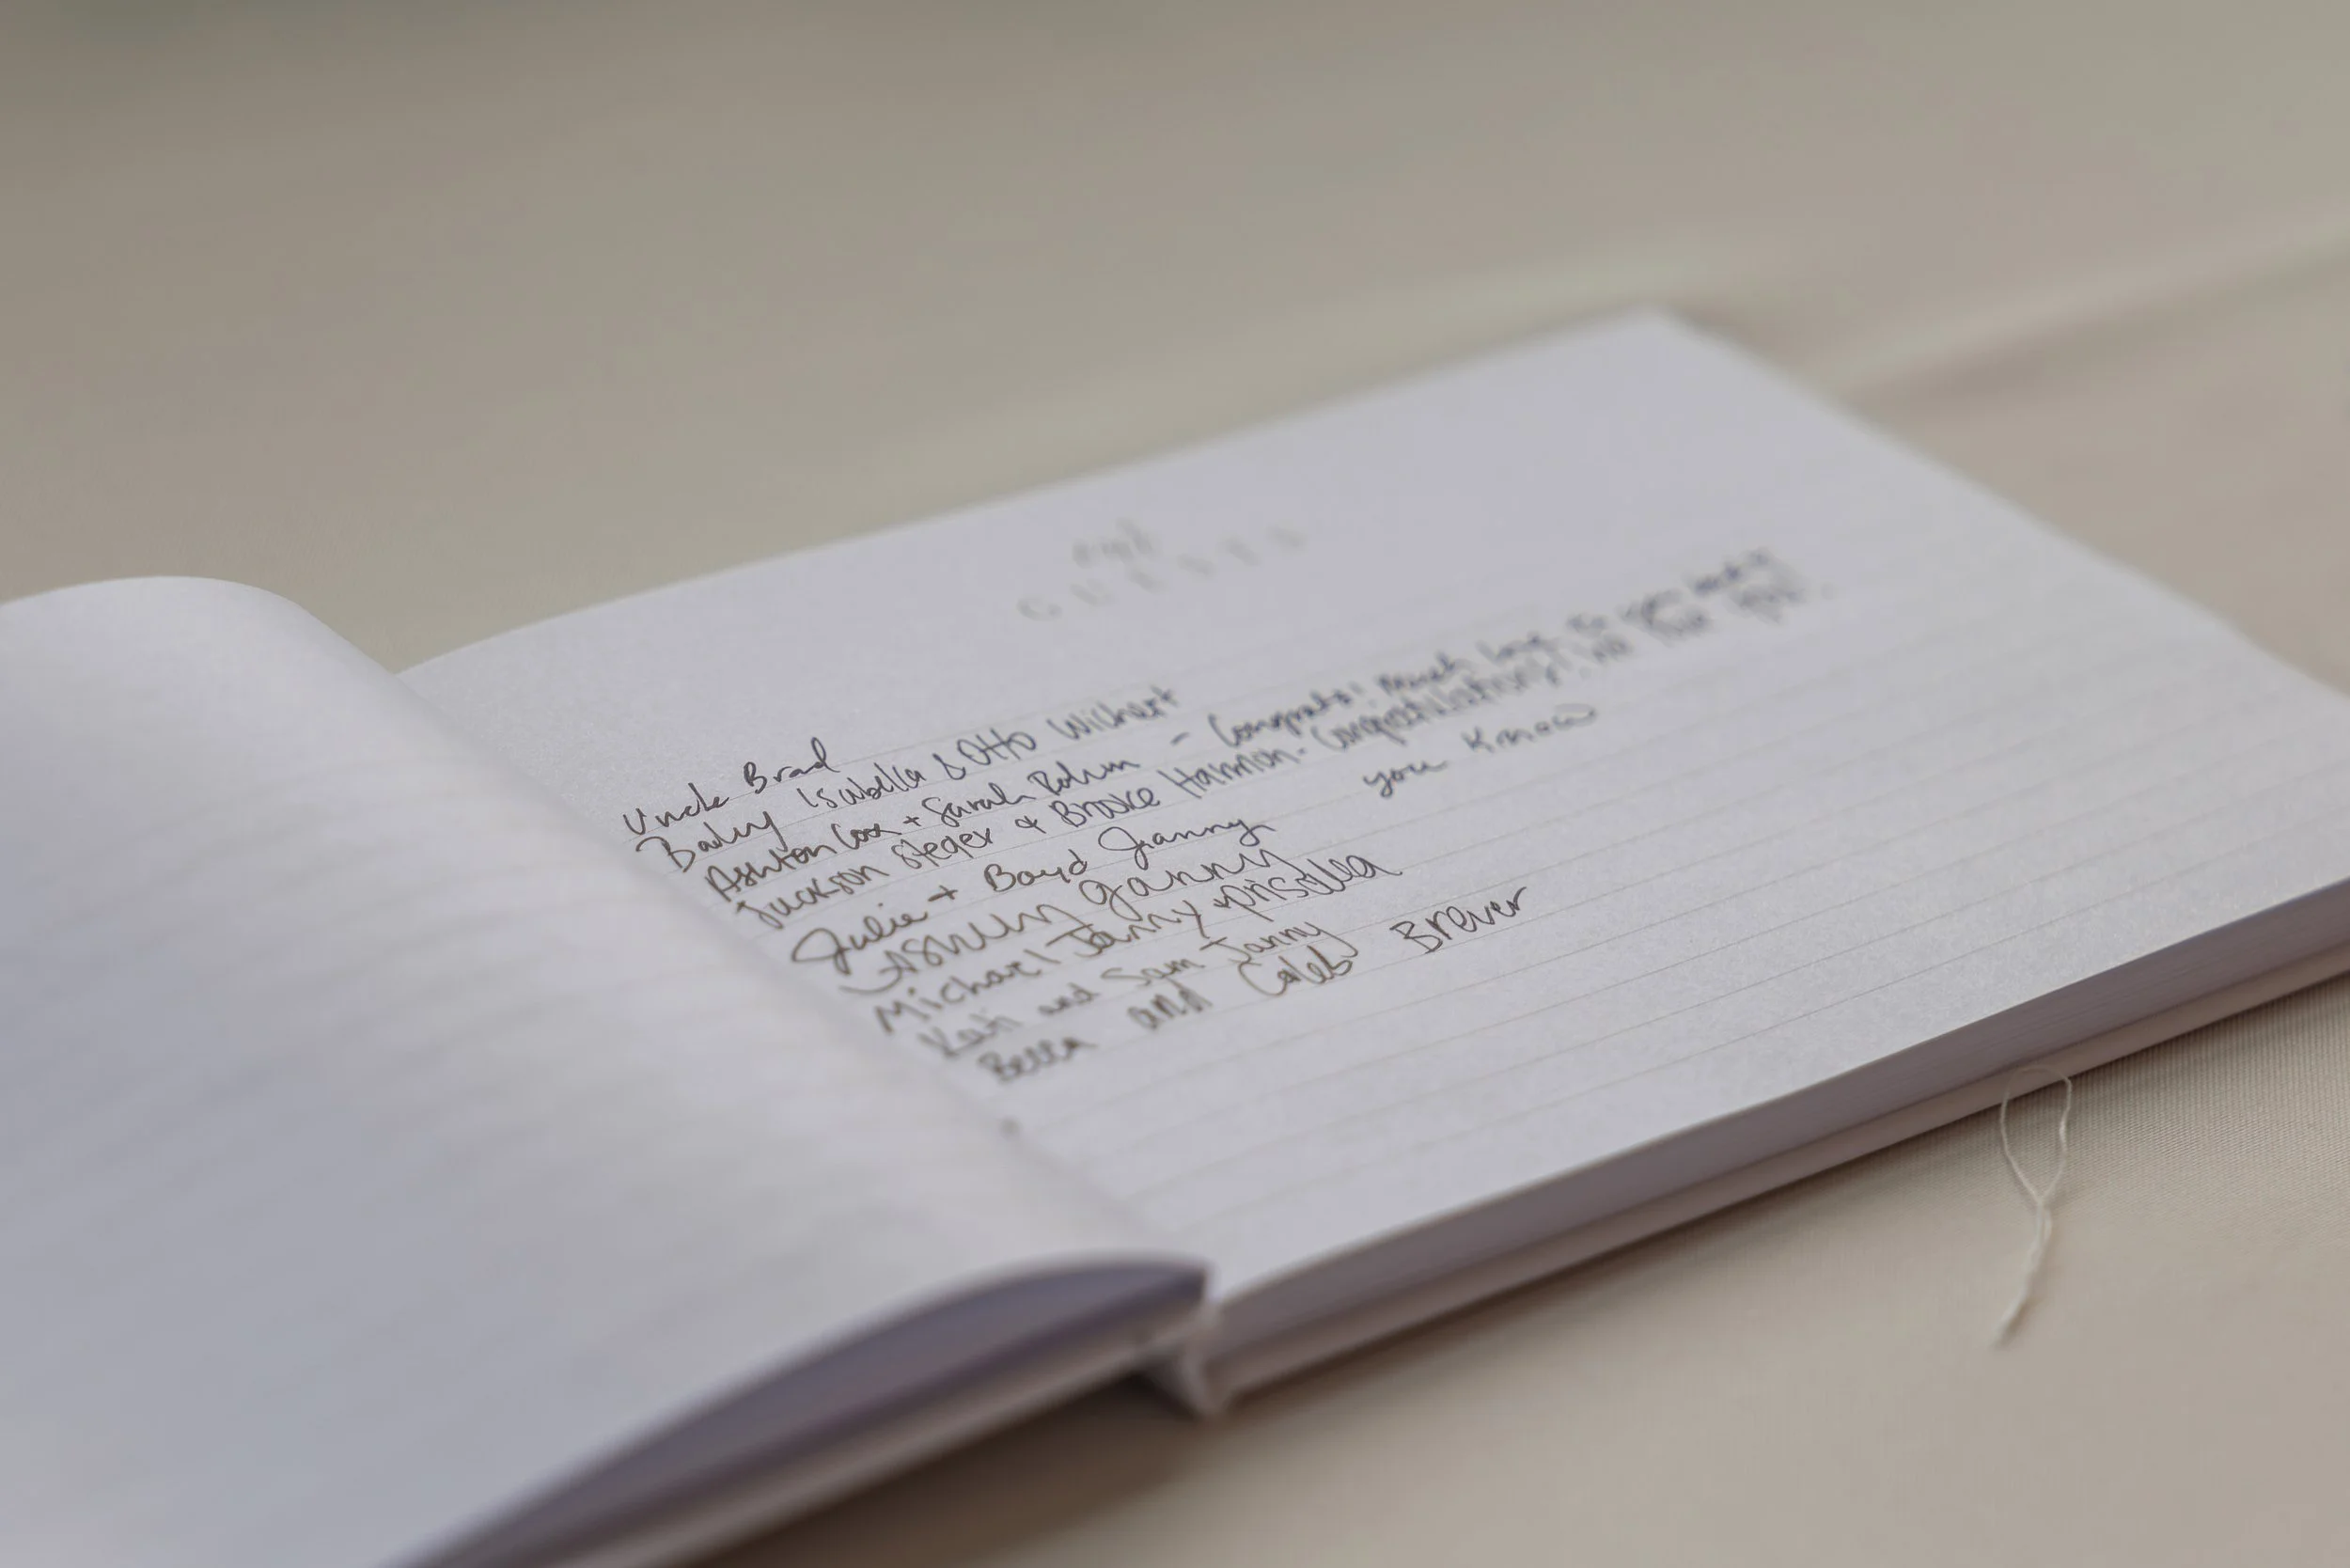 GUESTS
Uncle Brad
Baily Isabella & Otto Wichert
Ashton Cox + Sarah Rohm - Congrats! Much love to you
Jackson Steger & Brooke Harmon - Congratulations!
you know
Julie + Boyd Janny
Janny
Michael Janny + priscilla
Kati and Sam Janny
Bella and Caleb Brever